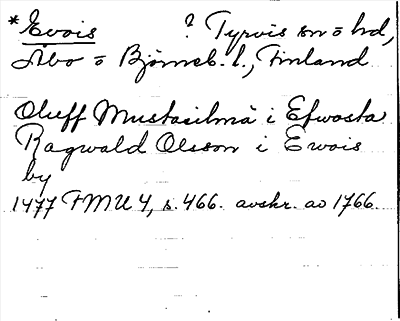 *Evois ? Tyrvis sn o hd,
Åbo o Björneb. l., Finland
Oluff Mustasilmä i Efwosta
Ragwald Olsson i Ewois
by
1477 FMU 4, s. 466. avskr. ao 1766.